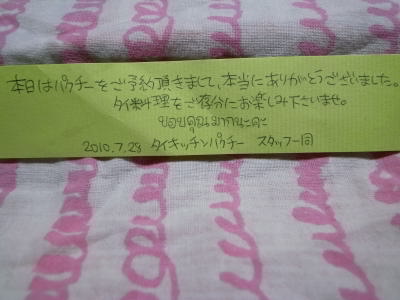 本日はパクチーをご予約頂きまして、本当にありがとうございました。
タイ料理をご存分にお楽しみ下さいませ。
ขอบคุณมากนะคะ
2010.7.28 タイキッチンパクチー スタッフ一同